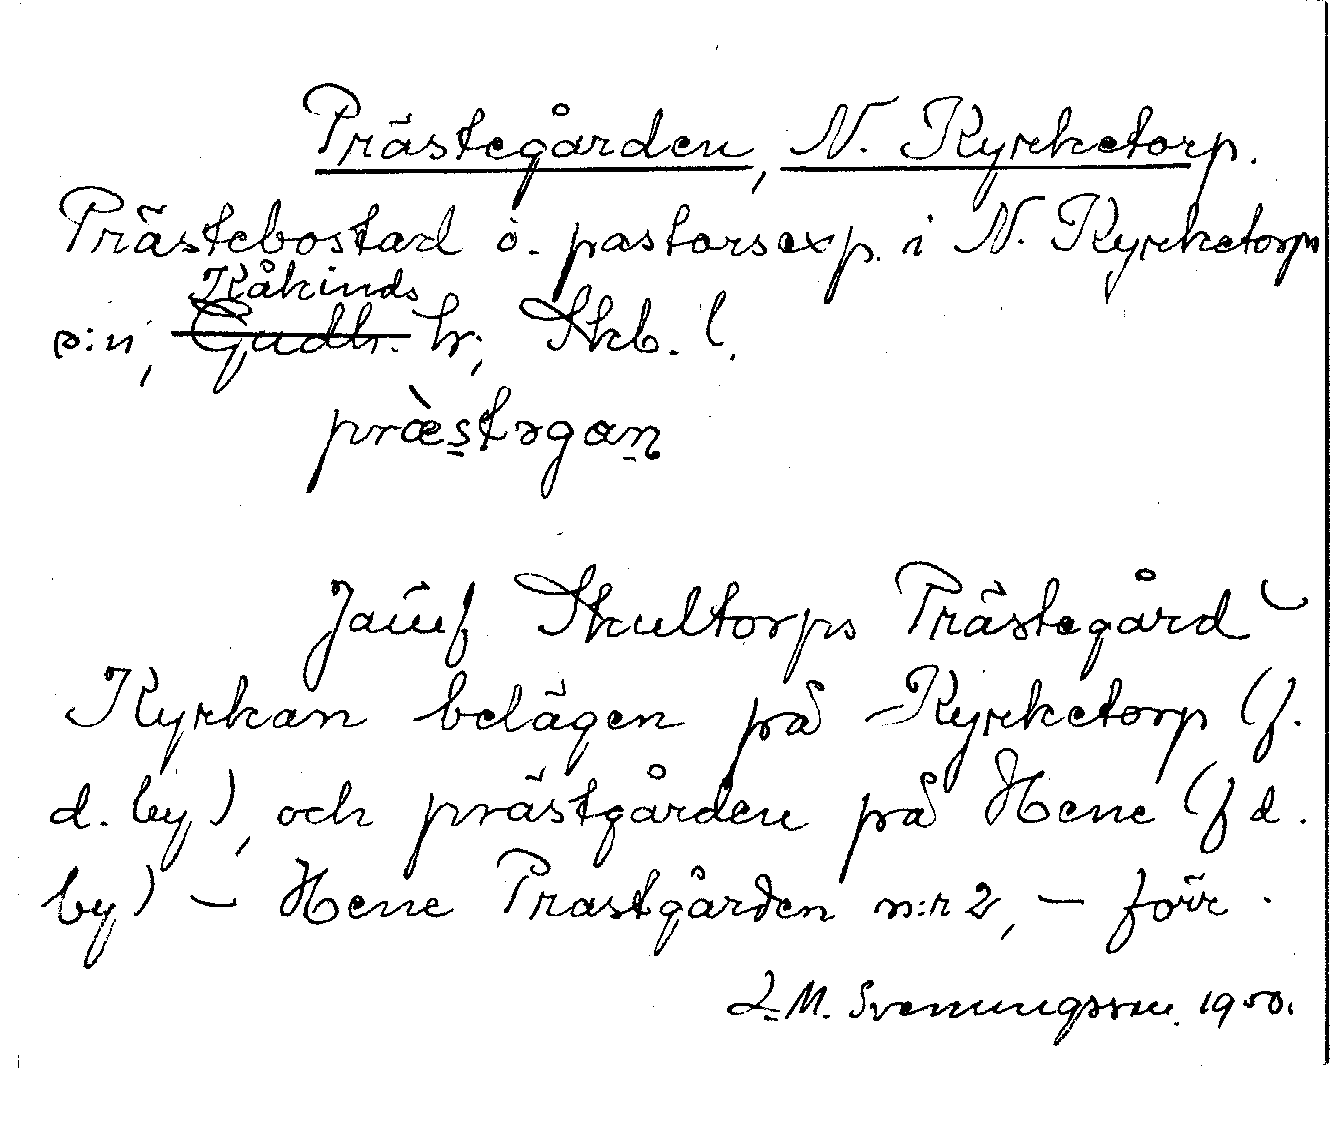 Prästegården, N. Kyrketorp.
Prästebostad o. pastorsexp. i N. Kyrketorps
Kåkinds
s:n, Gudh. hr, Skb. l.
præ̀stəgan
Jämf Skultorps Prästegård –
Kyrkan belägen på Kyrketorp (f.
d. by), och prästgården på Hene (f d.
by) – Hene Prastgården n:r 2, – förr.
L M. Svenungsson. 1950.